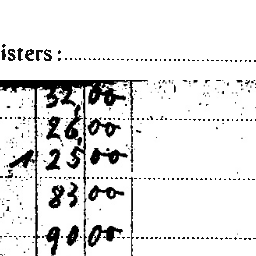 isters:
32,00
26,00
1 25,00
83 00
90 00